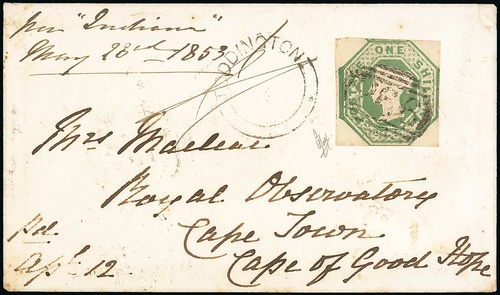 per "Indiana"
May 23rd 1853
PADDINGTON
ONE SHILLING
Mrs Maclear
Royal Observatory
Cape Town
Cape of Good Hope
pd.
Apl. 12.